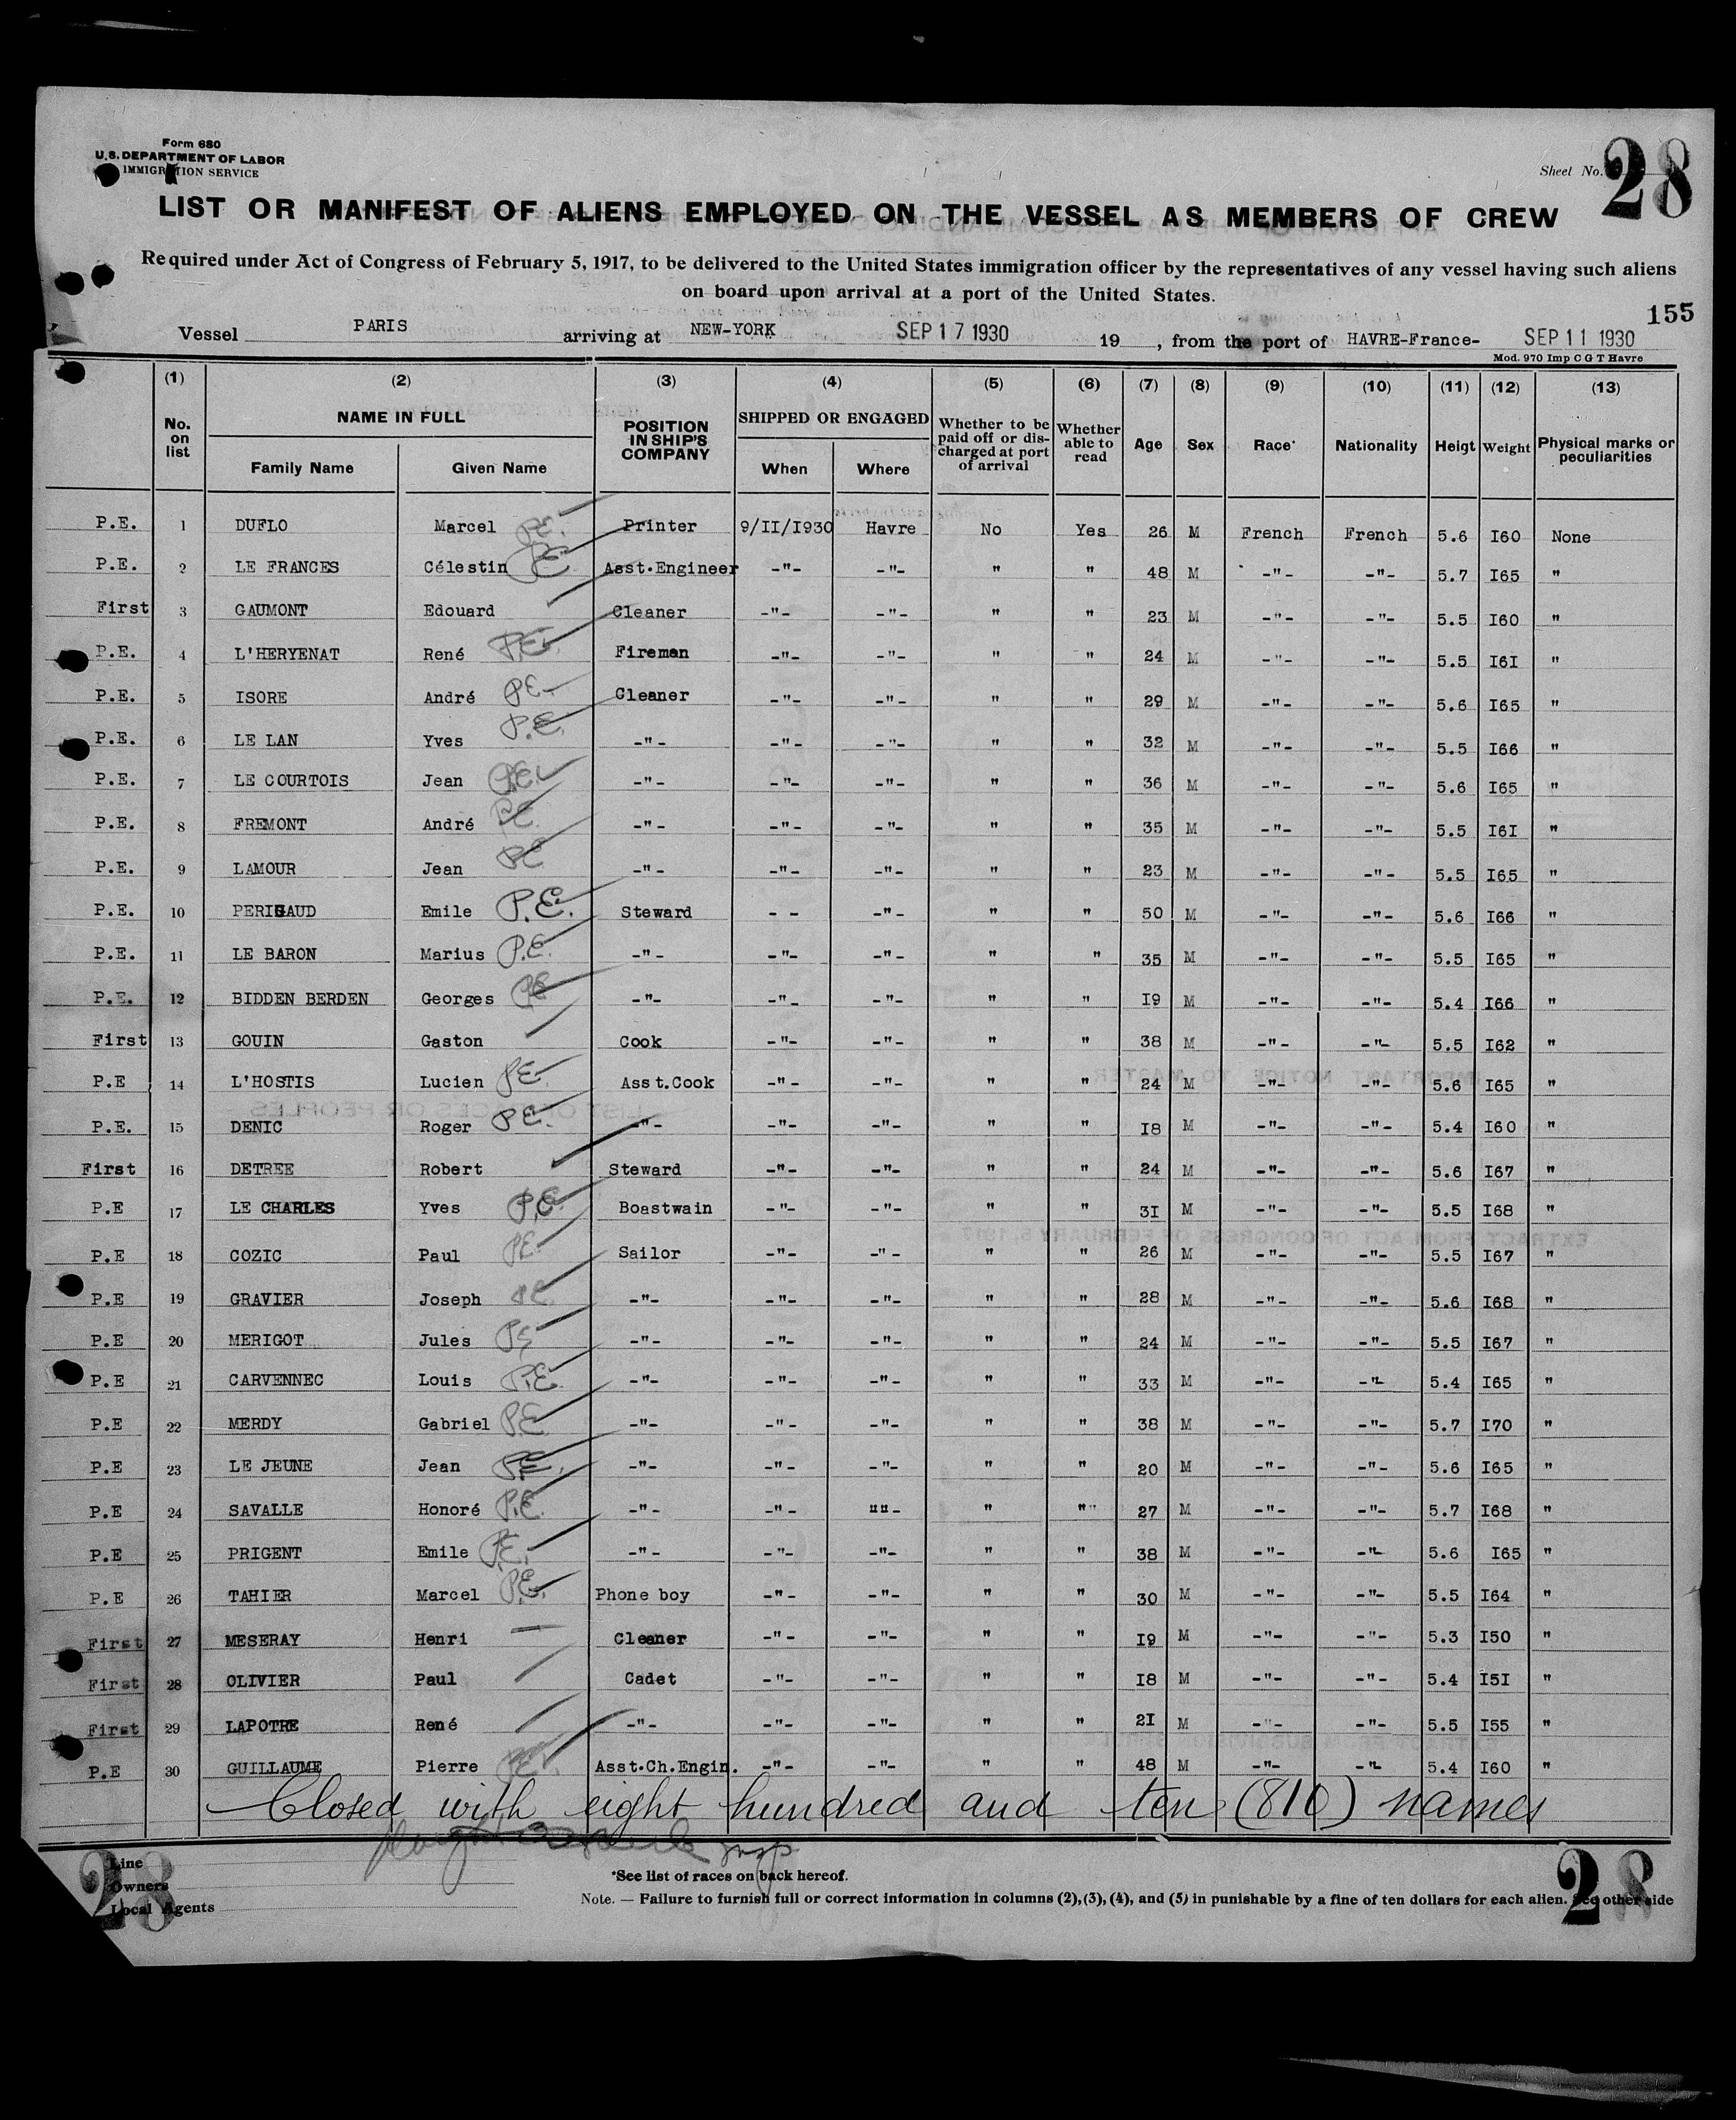 Form 680
U.S. DEPARTMENT OF LABOR
IMMIGRATION SERVICE
Sheet No. 28
LIST OR MANIFEST OF ALIENS EMPLOYED ON THE VESSEL AS MEMBERS OF CREW
Required under Act of Congress of February 5, 1917, to be delivered to the United States immigration officer by the representatives of any vessel having such aliens
on board upon arrival at a port of the United States.
155
Vessel PARIS arriving at NEW-YORK SEP 17 1930 19 , from the port of HAVRE-France- SEP 11 1930
Mod. 970 Imp C G T Havre
(1) (2) (3) (4) (5) (6) (7) (8) (9) (10) (11) (12) (13)
No. on list NAME IN FULL Family Name Given Name POSITION IN SHIP'S COMPANY SHIPPED OR ENGAGED When Where Whether to be paid off or discharged at port of arrival Whether able to read Age Sex Race* Nationality Heigt Weight Physical marks or peculiarities
P.E. 1 DUFLO Marcel P.E. Printer 9/II/I930 Havre No Yes 26 M French French 5.6 I60 None
P.E. 2 LE FRANCES Célestin P.E. Asst.Engineer -"- -"- " " 48 M -"- -"- 5.7 I65 "
First 3 GAUMONT Edouard Cleaner -"- -"- " " 23 M -"- -"- 5.5 I60 "
P.E. 4 L'HERYENAT René P.E. Fireman -"- -"- " " 24 M -"- -"- 5.5 I6I "
P.E. 5 ISORE André P.E. Cleaner -"- -"- " " 29 M -"- -"- 5.6 I65 "
P.E. 6 LE LAN Yves P.E. -"- -"- -"- " " 32 M -"- -"- 5.5 I66 "
P.E. 7 LE COURTOIS Jean P.E. -"- -"- -"- " " 36 M -"- -"- 5.6 I65 "
P.E. 8 FREMONT André P.E. -"- -"- -"- " " 35 M -"- -"- 5.5 I6I "
P.E. 9 LAMOUR Jean P.E -"- -"- -"- " " 23 M -"- -"- 5.5 I65 "
P.E. 10 PERIGAUD Emile P.E. Steward - - -"- " " 50 M -"- -"- 5.6 I66 "
P.E. 11 LE BARON Marius P.E. -"- -"- -"- " " 35 M -"- -"- 5.5 I65 "
P.E. 12 BIDDEN BERDEN Georges P.E -"- -"- -"- " " I9 M -"- -"- 5.4 I66 "
First 13 GOUIN Gaston Cook -"- -"- " " 38 M -"- -"- 5.5 I62 "
P.E 14 L'HOSTIS Lucien P.E. Asst.Cook -"- -"- " " 24 M -"- -"- 5.6 I65 "
P.E. 15 DENIC Roger P.E. -"- -"- -"- " " I8 M -"- -"- 5.4 I60 "
First 16 DETREE Robert Steward -"- -"- " " 24 M -"- -"- 5.6 I67 "
P.E 17 LE CHARLES Yves P.E. Boastwain -"- -"- " " 3I M -"- -"- 5.5 I68 "
P.E 18 COZIC Paul P.E. Sailor -"- -"- " " 26 M -"- -"- 5.5 I67 "
P.E 19 GRAVIER Joseph P.E. -"- -"- -"- " " 28 M -"- -"- 5.6 I68 "
P.E 20 MERIGOT Jules P.E -"- -"- -"- " " 24 M -"- -"- 5.5 I67 "
P.E 21 CARVENNEC Louis P.E. -"- -"- -"- " " 33 M -"- -"- 5.4 I65 "
P.E 22 MERDY Gabriel P.E -"- -"- -"- " " 38 M -"- -"- 5.7 I70 "
P.E 23 LE JEUNE Jean P.E. -"- -"- -"- " " 20 M -"- -"- 5.6 I65 "
P.E 24 SAVALLE Honoré P.E. -"- -"- ""- " " 27 M -"- -"- 5.7 I68 "
P.E 25 PRIGENT Emile P.E. -"- -"- -"- " " 38 M -"- -"- 5.6 I65 "
P.E 26 TAHIER Marcel P.E. Phone boy -"- -"- " " 30 M -"- -"- 5.5 I64 "
First 27 MESERAY Henri Cleaner -"- -"- " " I9 M -"- -"- 5.3 I50 "
First 28 OLIVIER Paul Cadet -"- -"- " " I8 M -"- -"- 5.4 I5I "
First 29 LAPOTRE René -"- -"- -"- " " 2I M -"- -"- 5.5 I55 "
P.E 30 GUILLAUME Pierre P.E. Asst.Ch.Engin. -"- -"- " " 48 M -"- -"- 5.4 I60 "
Closed with eight hundred and ten (810) names
Insp.
28
Line
Owners
Local Agents
*See list of races on back hereof.
Note. — Failure to furnish full or correct information in columns (2),(3),(4), and (5) in punishable by a fine of ten dollars for each alien. See other side
28